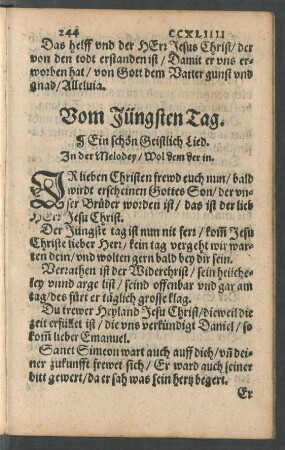 244 CCXLIIII
Das helff vnd der HErr Jesus Christ/ der
von den todt erstanden ist/ Damit er vns er-
worben hat/ von Gott dem Vatter gunst vnd
gnad/ Alleluia.
Vom Jüngsten Tag.
¶ Ein schön Geistlich Lied.
In der Melodey/ Wol dem der in.
IR lieben Christen frewd euch nun/ bald
wirdt erscheinen Gottes Son/ der vn-
ser Brüder worden ist/ das ist der lieb
HErr Jesu Christ.
Der Jüngste tag ist nun nit ferr/ kom̃ Jesu
Christe lieber Herr/ kein tag vergeht wir war-
ten dein/ vnd wolten gern bald bey dir sein.
Verrathen ist der Widerchrist/ sein heüche-
ley vnnd arge list/ seind offenbar vnd gar am
tag/ des fürt er täglich grosse klag.
Du trewer Heyland Jesu Christ/ dieweil die
zeit erfület ist/ die vns verkündigt Daniel/ so
kom̃ lieber Emanuel.
Sanct Simeon wart auch auff dich/ vñ dei-
ner zukunfft frewet sich/ Er ward auch seiner
bitt gewert/ da er sah was sein hertz begert.
Er